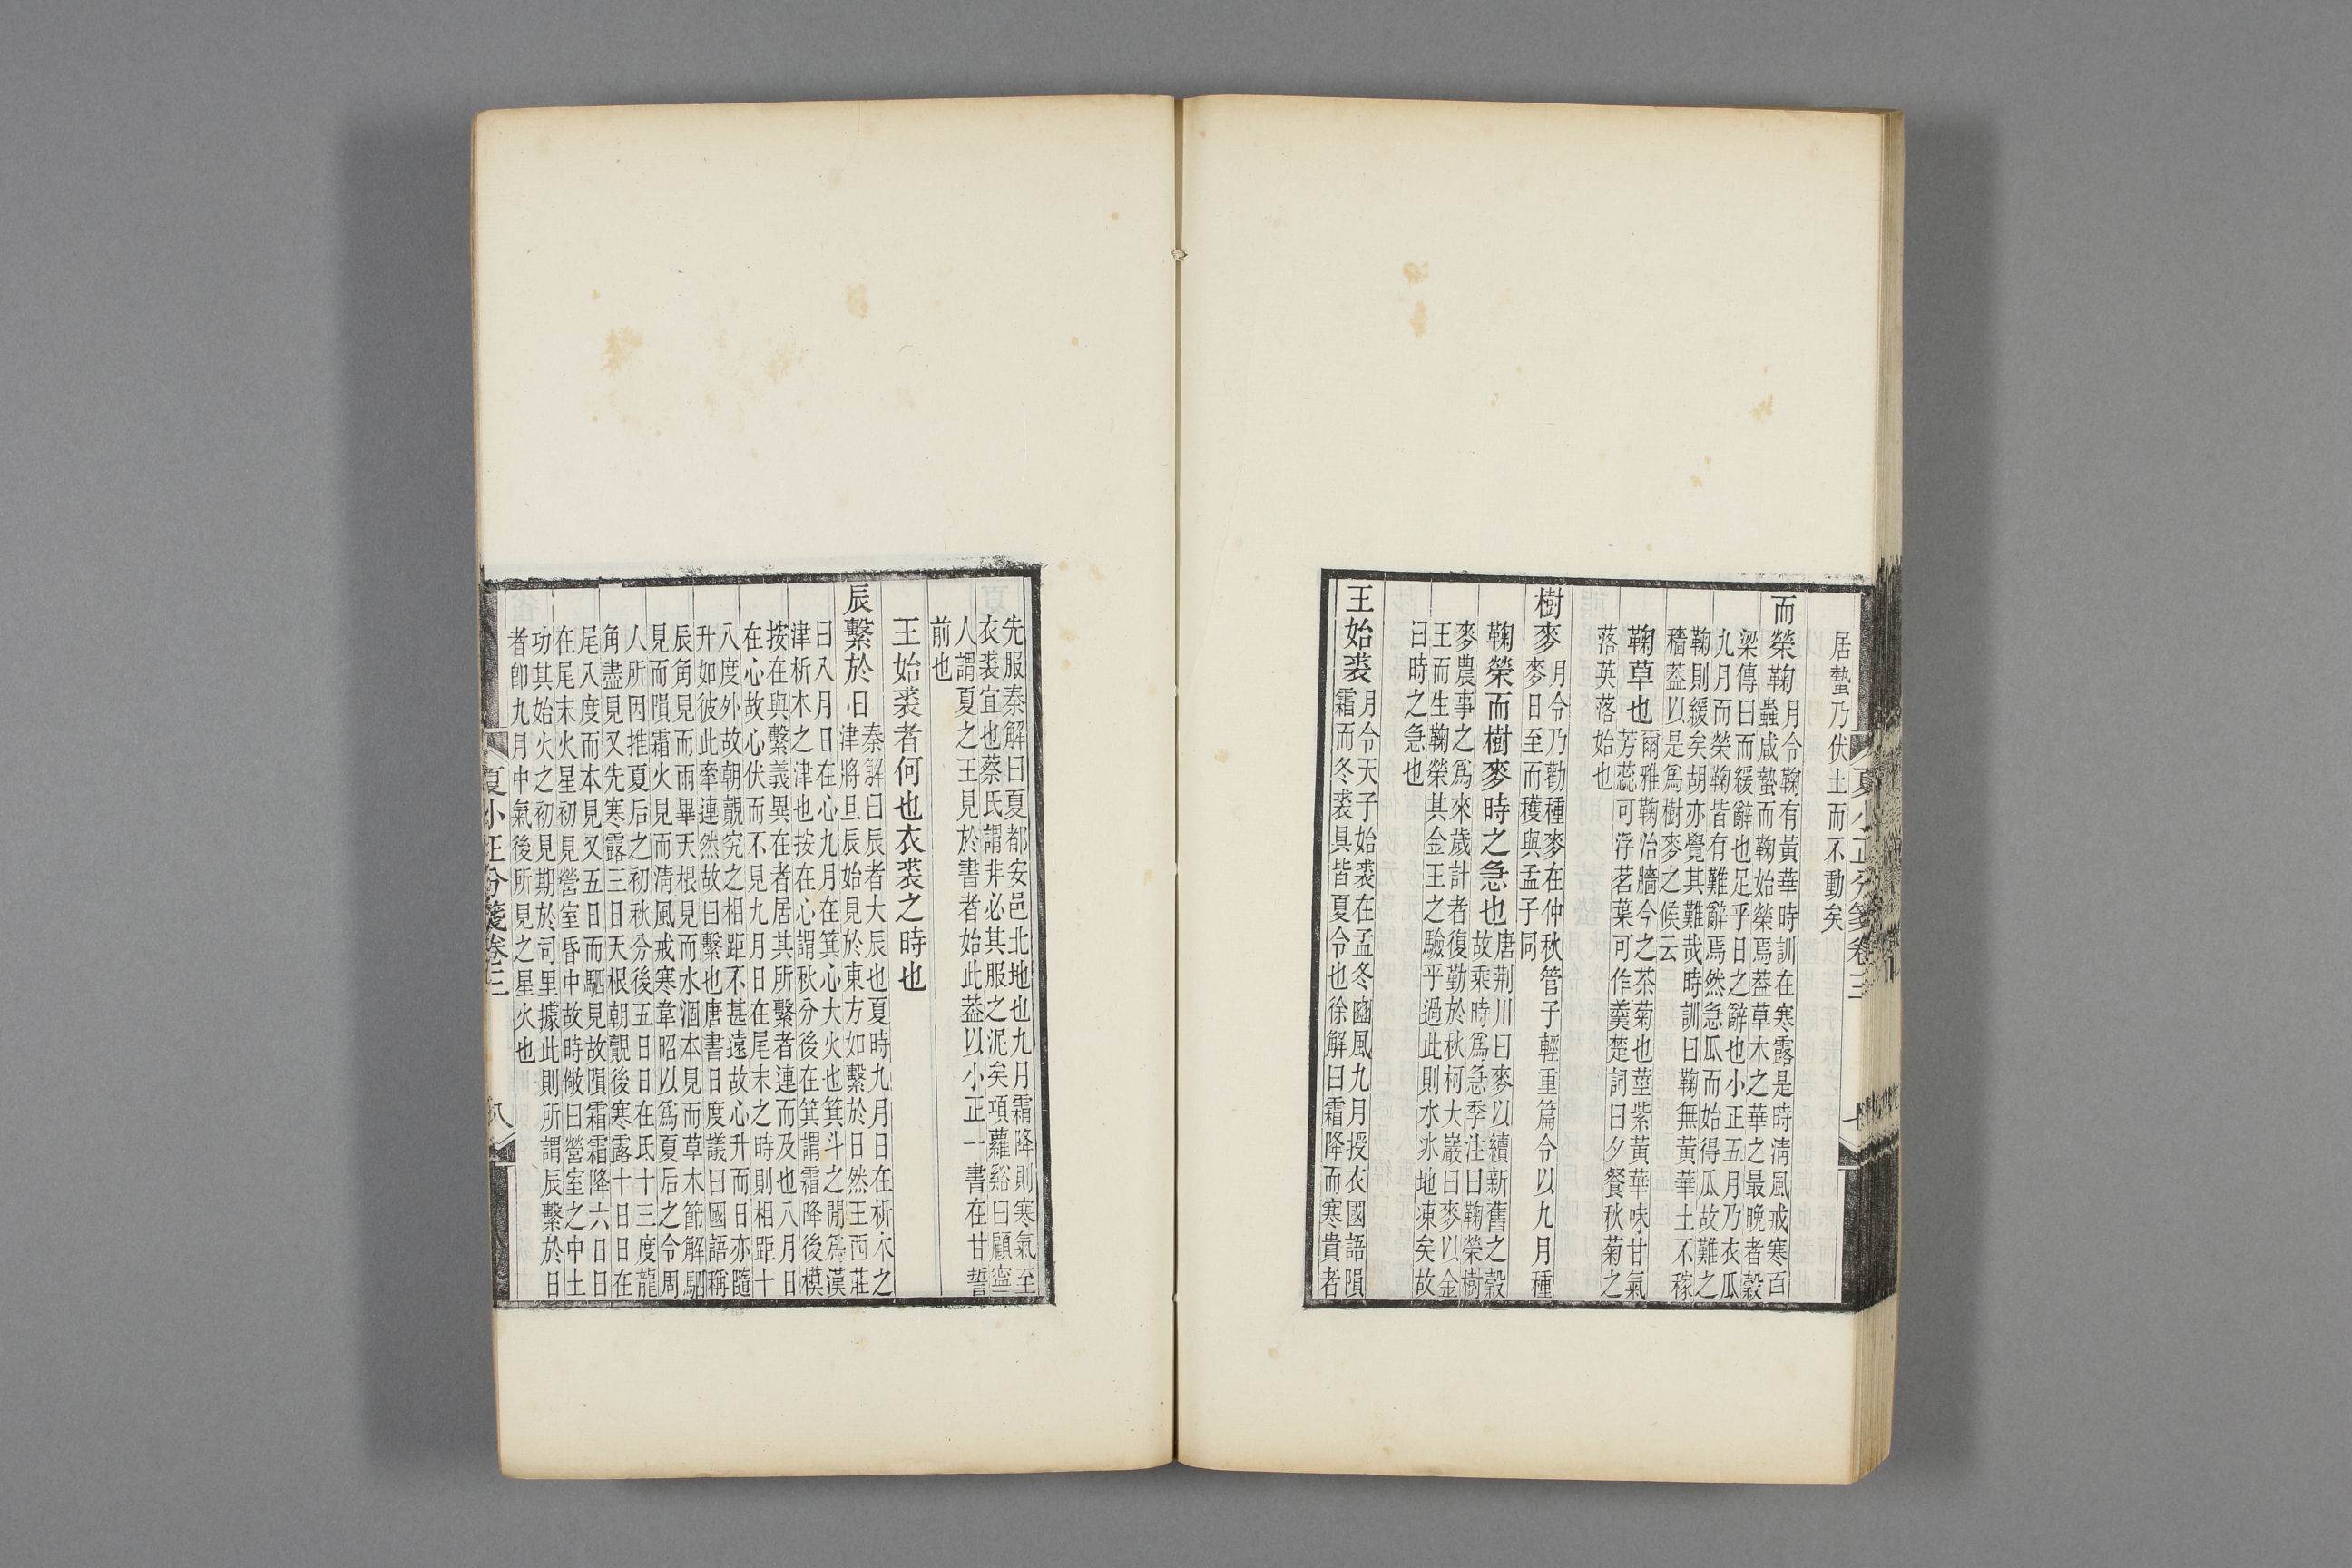 居蟄乃伏土而不動矣
而榮鞠月令鞠有黃華時訓在寒露是時淸風戒寒百
蟲咸蟄而鞠始榮焉葢草木之華之最晚者穀
梁傳曰而緩辭也足乎日之辭也小正五月乃衣瓜
九月而榮鞠皆有難辭焉然急瓜而始得瓜故難之
鞠則緩矣胡亦覺其難哉時訓曰鞠無黃華土不稼
穡葢以是爲樹麥之候云
鞠草也爾雅鞠治牆今之茶菊也莖紫黃華味甘氣
芳蕊可浮茗葉可作羹楚詞曰夕餐秋菊之
落英落始也
樹麥月令乃勸種麥在仲秋管子輕重篇令以九月種
麥日至而穫與孟子同
鞠榮而樹麥時之急也唐荆川曰麥以續新舊之穀
故乘時爲急季注曰鞠榮樹
麥農事之爲來歲計者復勤於秋柯大巖曰麥以金
王而生鞠榮其金王之驗乎過此則水氷地凍矣故
曰時之急也
王始裘月令天子始裘在孟冬豳風九月授衣國語隕
霜而冬裘具皆夏令也徐解曰霜降而寒貴者
夏小正分箋卷三
七
先服秦解曰夏都安邑北地也九月霜降則寒氣至
衣裘宜也蔡氏謂非必其服之泥矣項蘿谿曰顧寍
人謂夏之王見於書者始此葢以小正一書在甘誓
前也
王始裘者何也衣裘之時也
辰繫於日秦解曰辰者大辰也夏時九月日在析木之
津將旦辰始見於東方如繫於日然王西莊
曰八月日在心九月在箕心大火也箕斗之閒爲漢
津析木之津也按在心謂秋分後在箕謂霜降後模
按在與繫義異在者居其所繫者連而及也八月日
在心故心伏而不見九月日在尾末之時則相距十
八度外故朝覿究之相距不甚遠故心升而日亦隨
升如彼此牽連然故曰繫也唐書日度議曰國語稱
辰角見而雨畢天根見而水涸本見而草木節解駟
見而隕霜火見而淸風戒寒韋昭以爲夏后之令周
人所因推夏后之初秋分後五日日在氐十三度龍
角盡見又先寒露三日天根朝覿後寒露十日日在
尾八度而本見又五日而駟見故隕霜霜降六日日
在尾末火星初見營室昏中故時儆曰營室之中土
功其始火之初見期於司里據此則所謂辰繫於日
者卽九月中氣後所見之星火也
夏小正分箋卷三
八